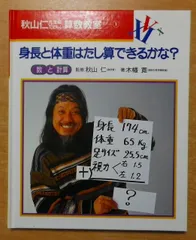 秋山仁 算数教室 1
身長と体重はたし算できるかな?
数と計算
監修 秋山仁 著 木幡寛
身長 174cm
体重 65Kg
足サイズ 25.5cm
視力 右 1.5
左 1.2
+)
?